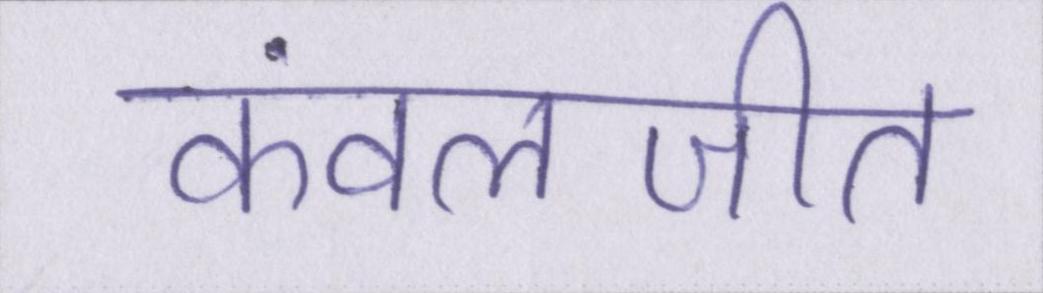 कंवलजीत